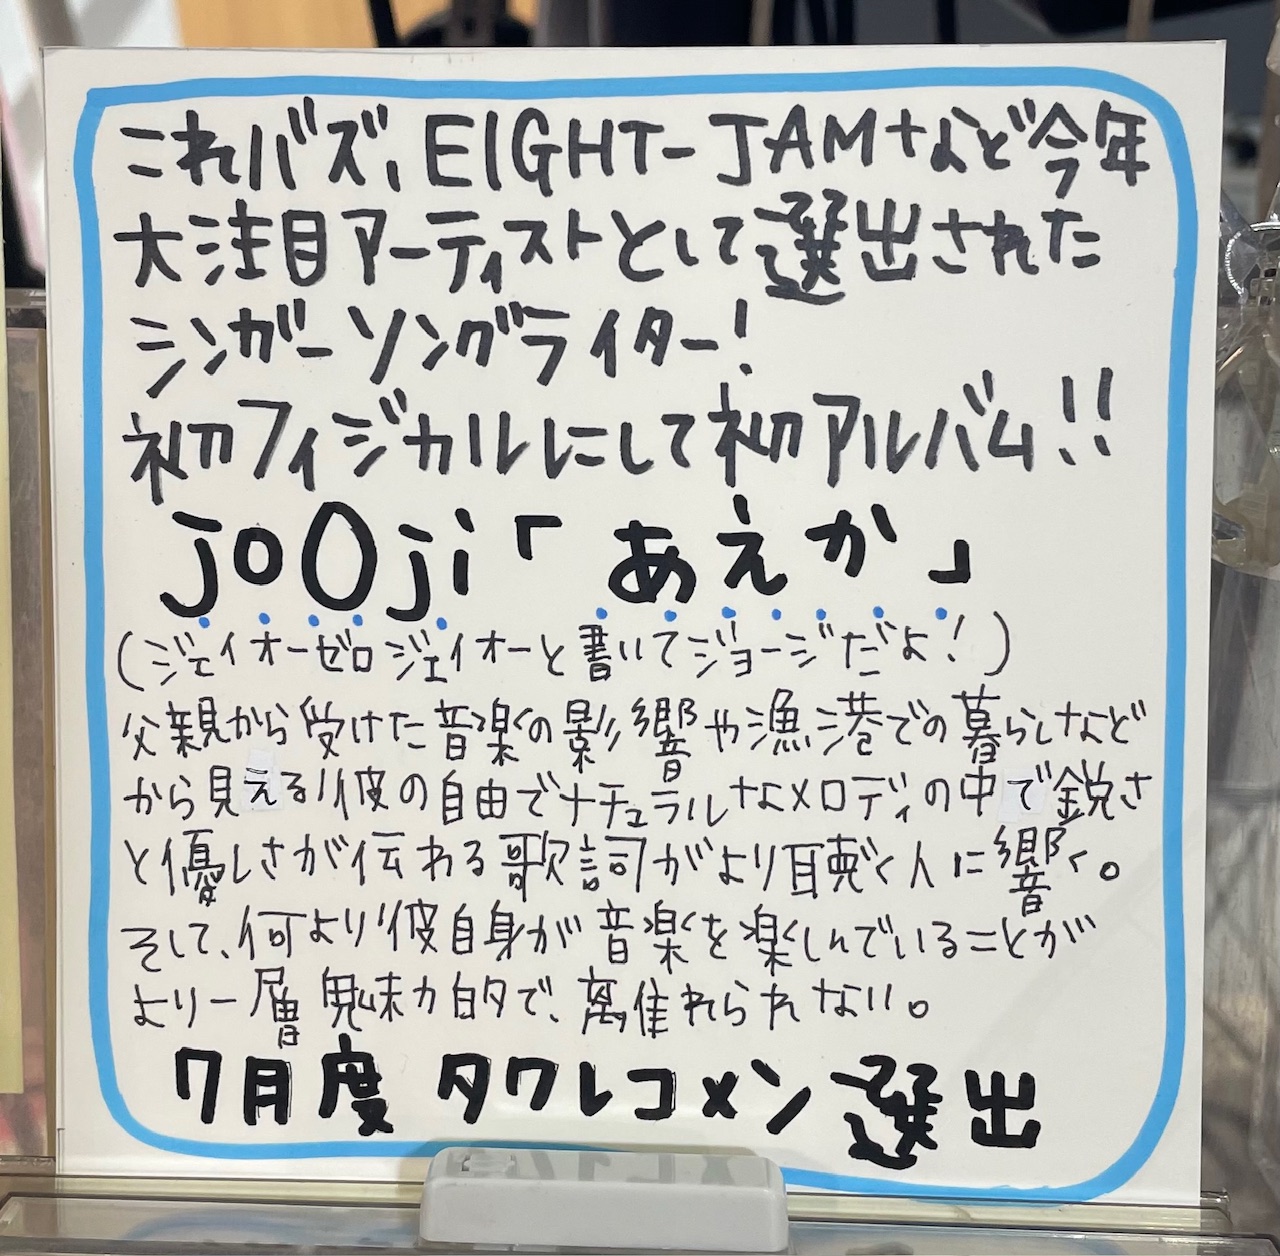 これバズ、EIGHT-JAMなど今年
大注目アーティストとして選出された
シンガーソングライター!
初フィジカルにして初アルバム!!
jo0ji「あえか」
(ジェイオーゼロジェイオーと書いてジョージだよ!)
父親から受けた音楽の影響や漁港での暮らしなど
から見える彼の自由でナチュラルなメロディの中で鋭さ
と優しさが伝わる歌詞がより聴く人に響く。
そして、何より彼自身が音楽を楽しんでいることが
より一層魅力的で、離れられない。
7月度 タワレコメン選出